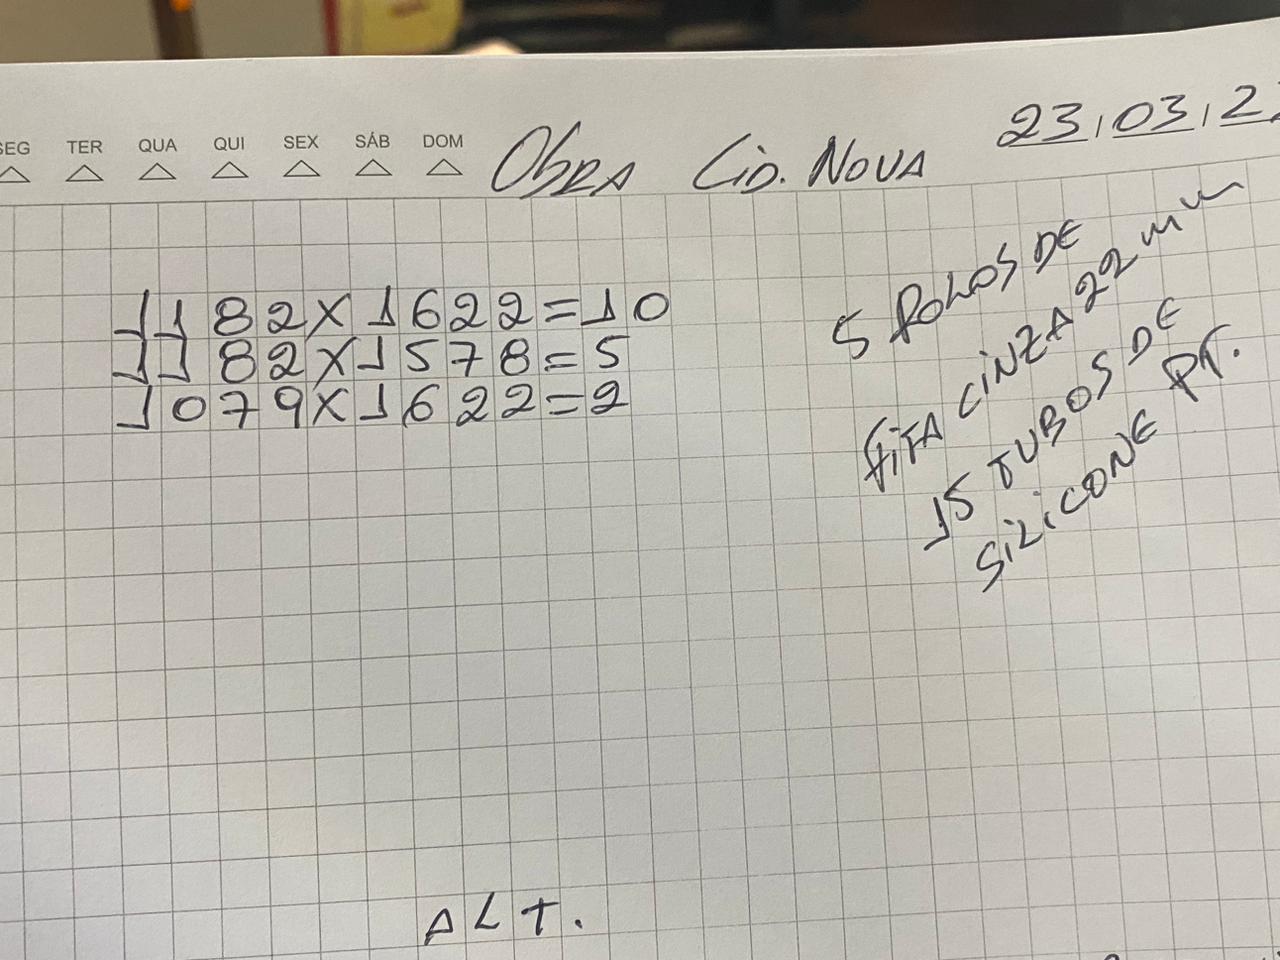 SEG TER QUA QUI SEX SÁB DOM
Obra Cid. Nova
23/03/2
1182x1622=10
1182x1578=5
1079x1622=2
5 ROLOS DE
FITA CINZA 22 mm
15 TUBOS DE
SILICONE PT.
ALT.